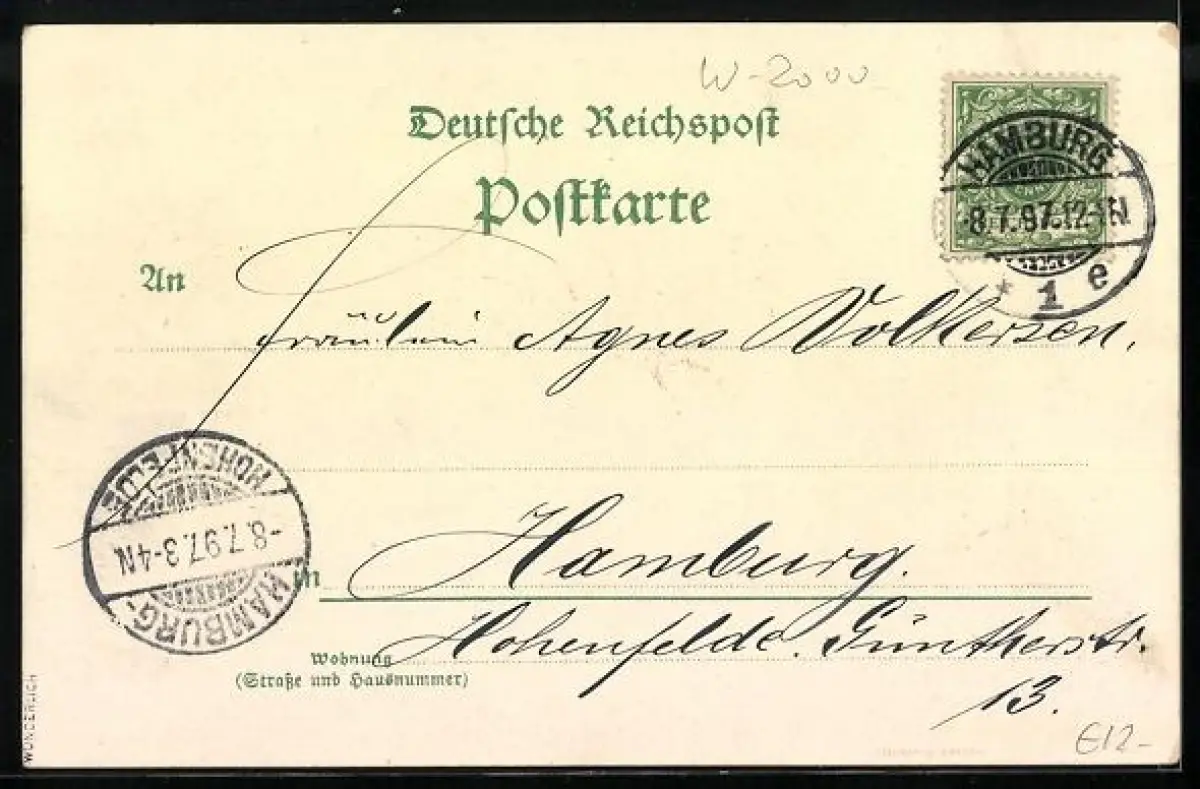 W-2000
Deutsche Reichspost
Postkarte
HAMBURG
-8.7.97.12-1N
* 1 e
An
Fräulein Agnes Volkersen,
HOHENFELDE
-8.7.97.3-4N
HAMBURG-
in
Hamburg.
Hohenfelde. Güntherstr.
Wohnung
(Straße und Hausnummer)
13.
WUNDERLICH
€12-